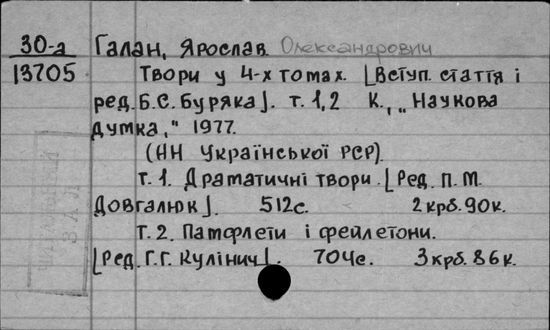 30-а Галан, Ярослав Олександрович
13705 Твори у 4-х томах. [Вступ. стаття і
ред. Б.С. Буряка]. т. 1,2 К., „Наукова
думка," 1977.
(НН Української РСР).
т. 1. Драматичні твори. [Ред. П. М.
Довгалюк]. 512с. 2 крб. 90к.
т. 2. Памфлети і фейлетони.
[Ред. Г. Г. Кулінич]. 704с. 3 крб. 86 к.
ЧИТАЛЬНЫЙ
ЗАЛ